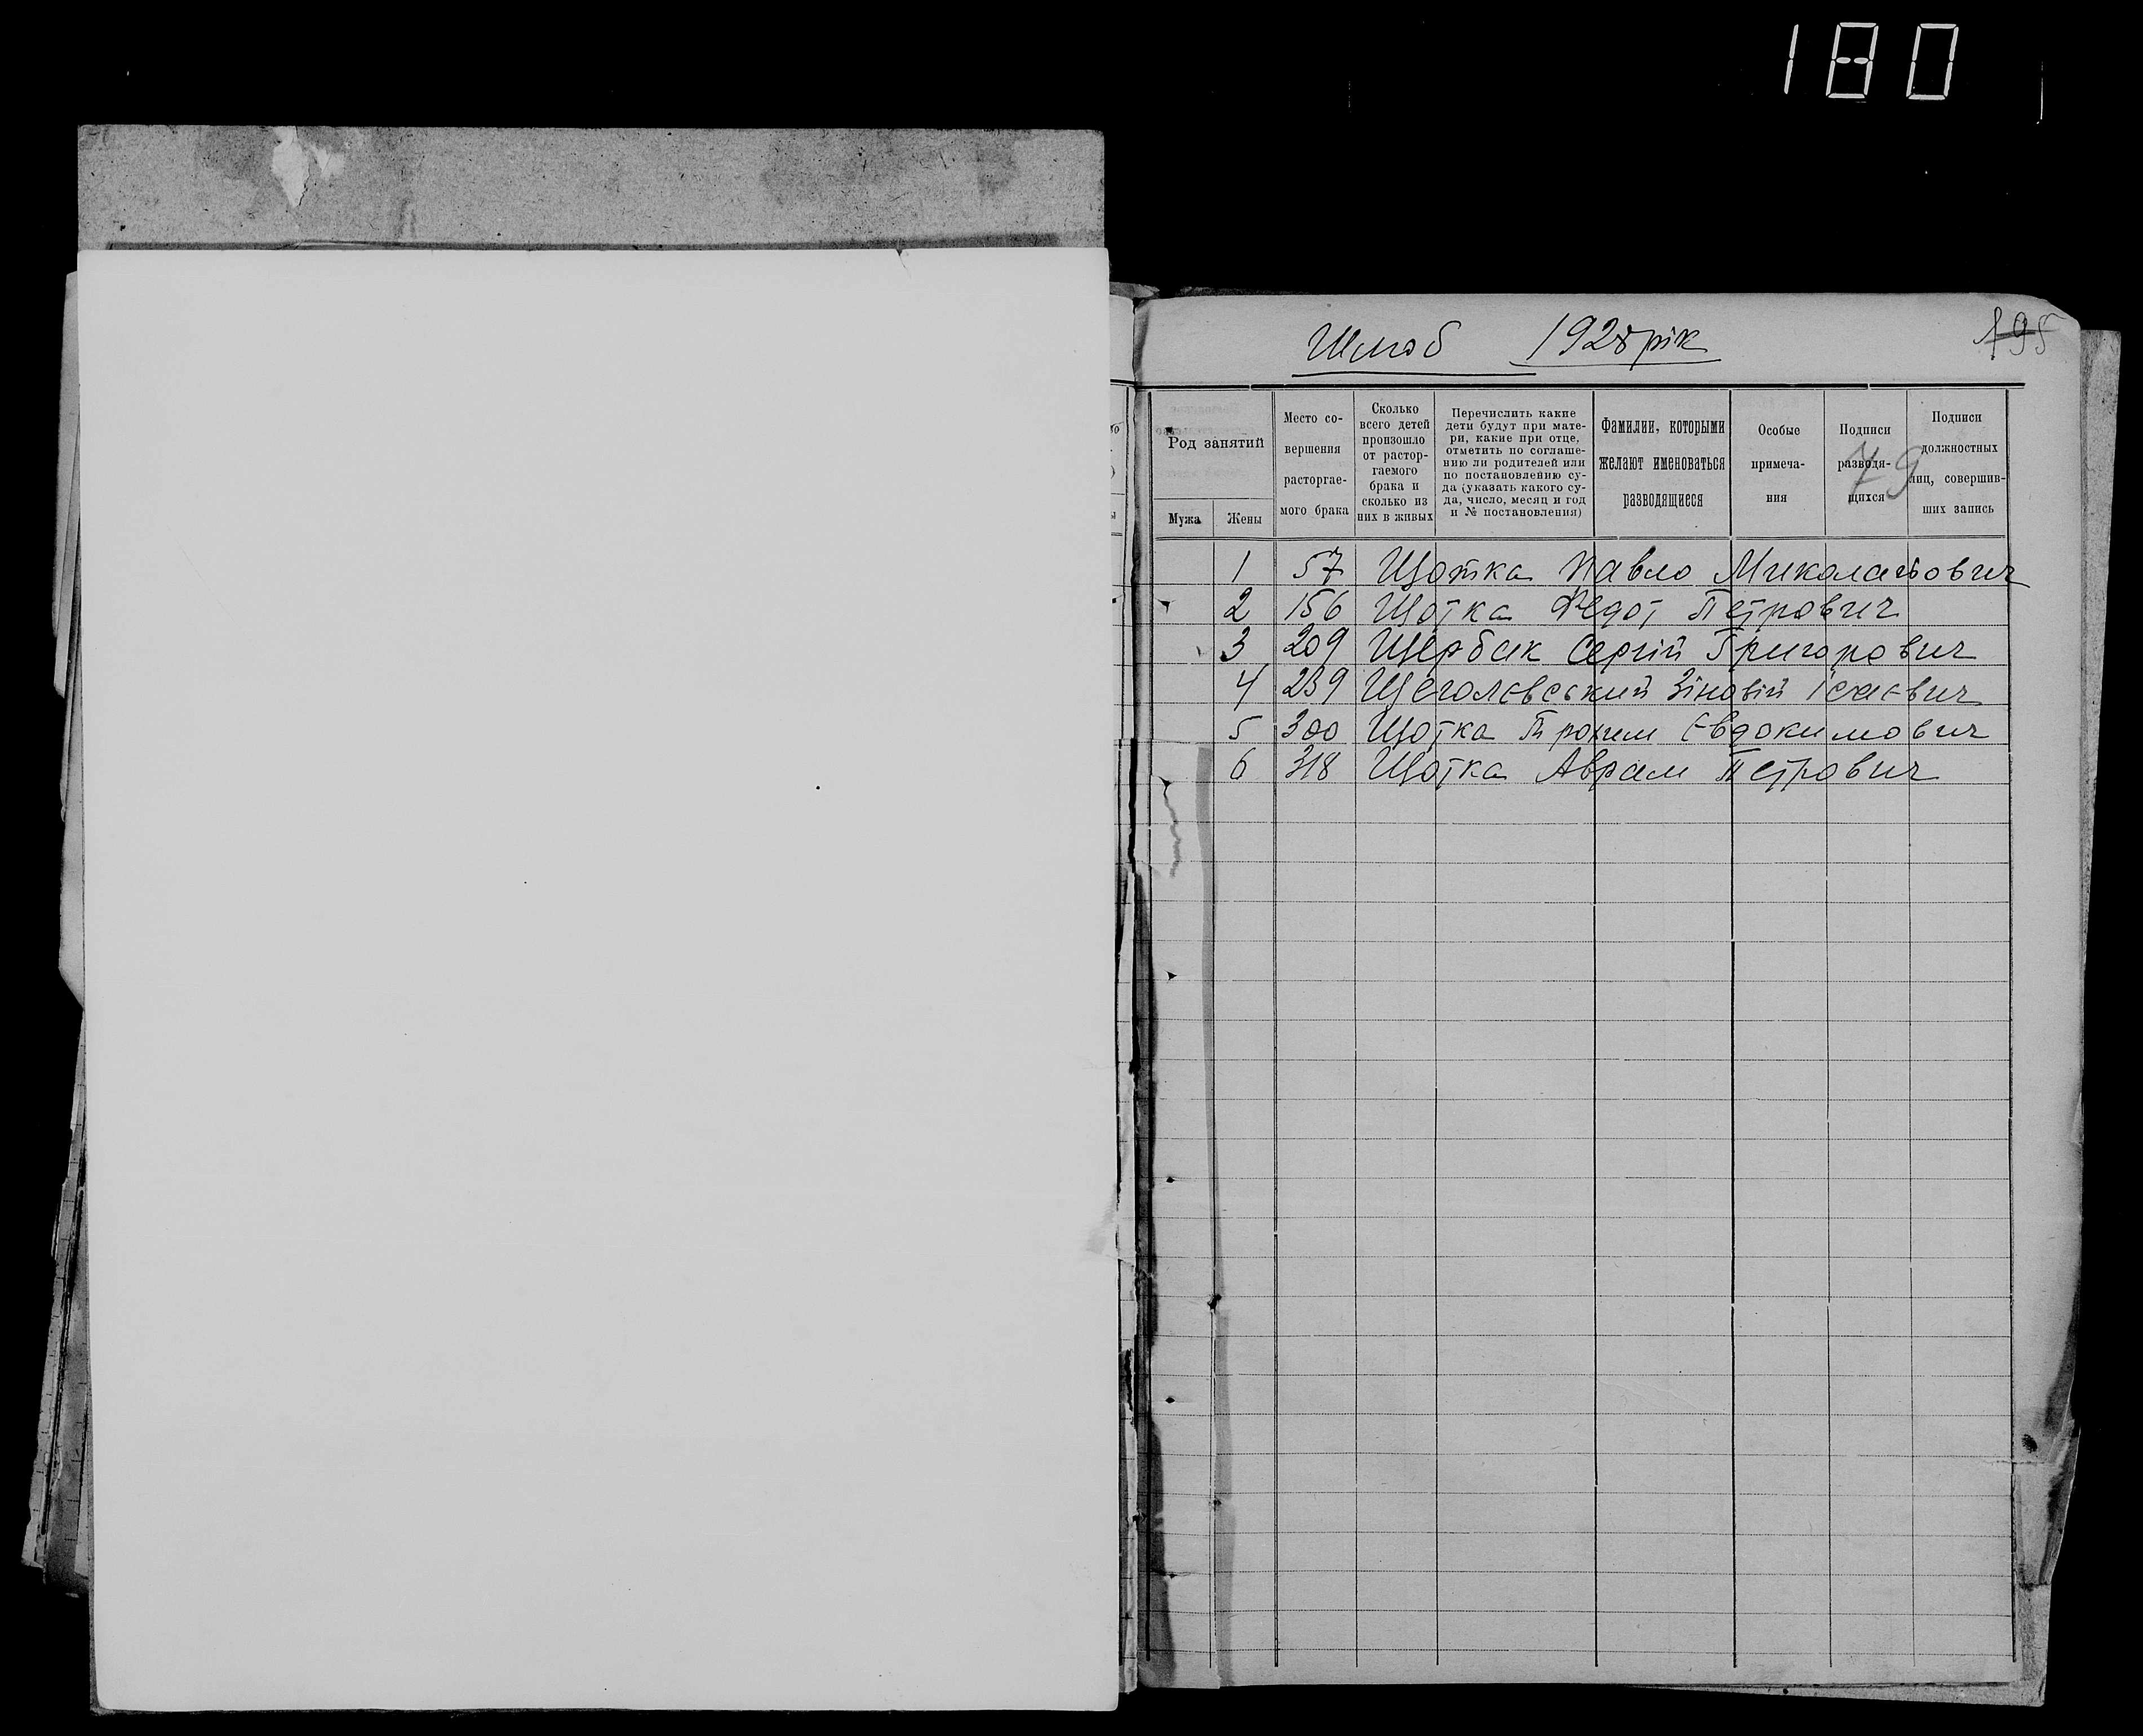 180
Шлюб 1928 рік
195
79
Род занятий
Мужа
Жены
Место со-
вершения
расторгае-
мого брака
Сколько
всего детей
произошло
от растор-
гаемого
брака и
сколько из
них в живых
Перечислить какие
дети будут при мате-
ри, какие при отце,
отметить по соглаше-
нию ли родителей или
по постановлению су-
да (указать какого су-
да, число, месяц и год
и № постановления)
Фамилии, которыми
желают именоваться
разводящиеся
Особые
примеча-
ния
Подписи
разводя-
щихся
Подписи
должностных
лиц, совершив-
ших запись
1 57 Щотка Павло Миколайович
2 156 Щотка Федот Петрович
3 209 Щербак Сергій Григорович
4 239 Щеголєвський Зіновій Ісаєвич
5 300 Щотка Трохим Євдокимович
6 318 Щотка Аврам Петрович